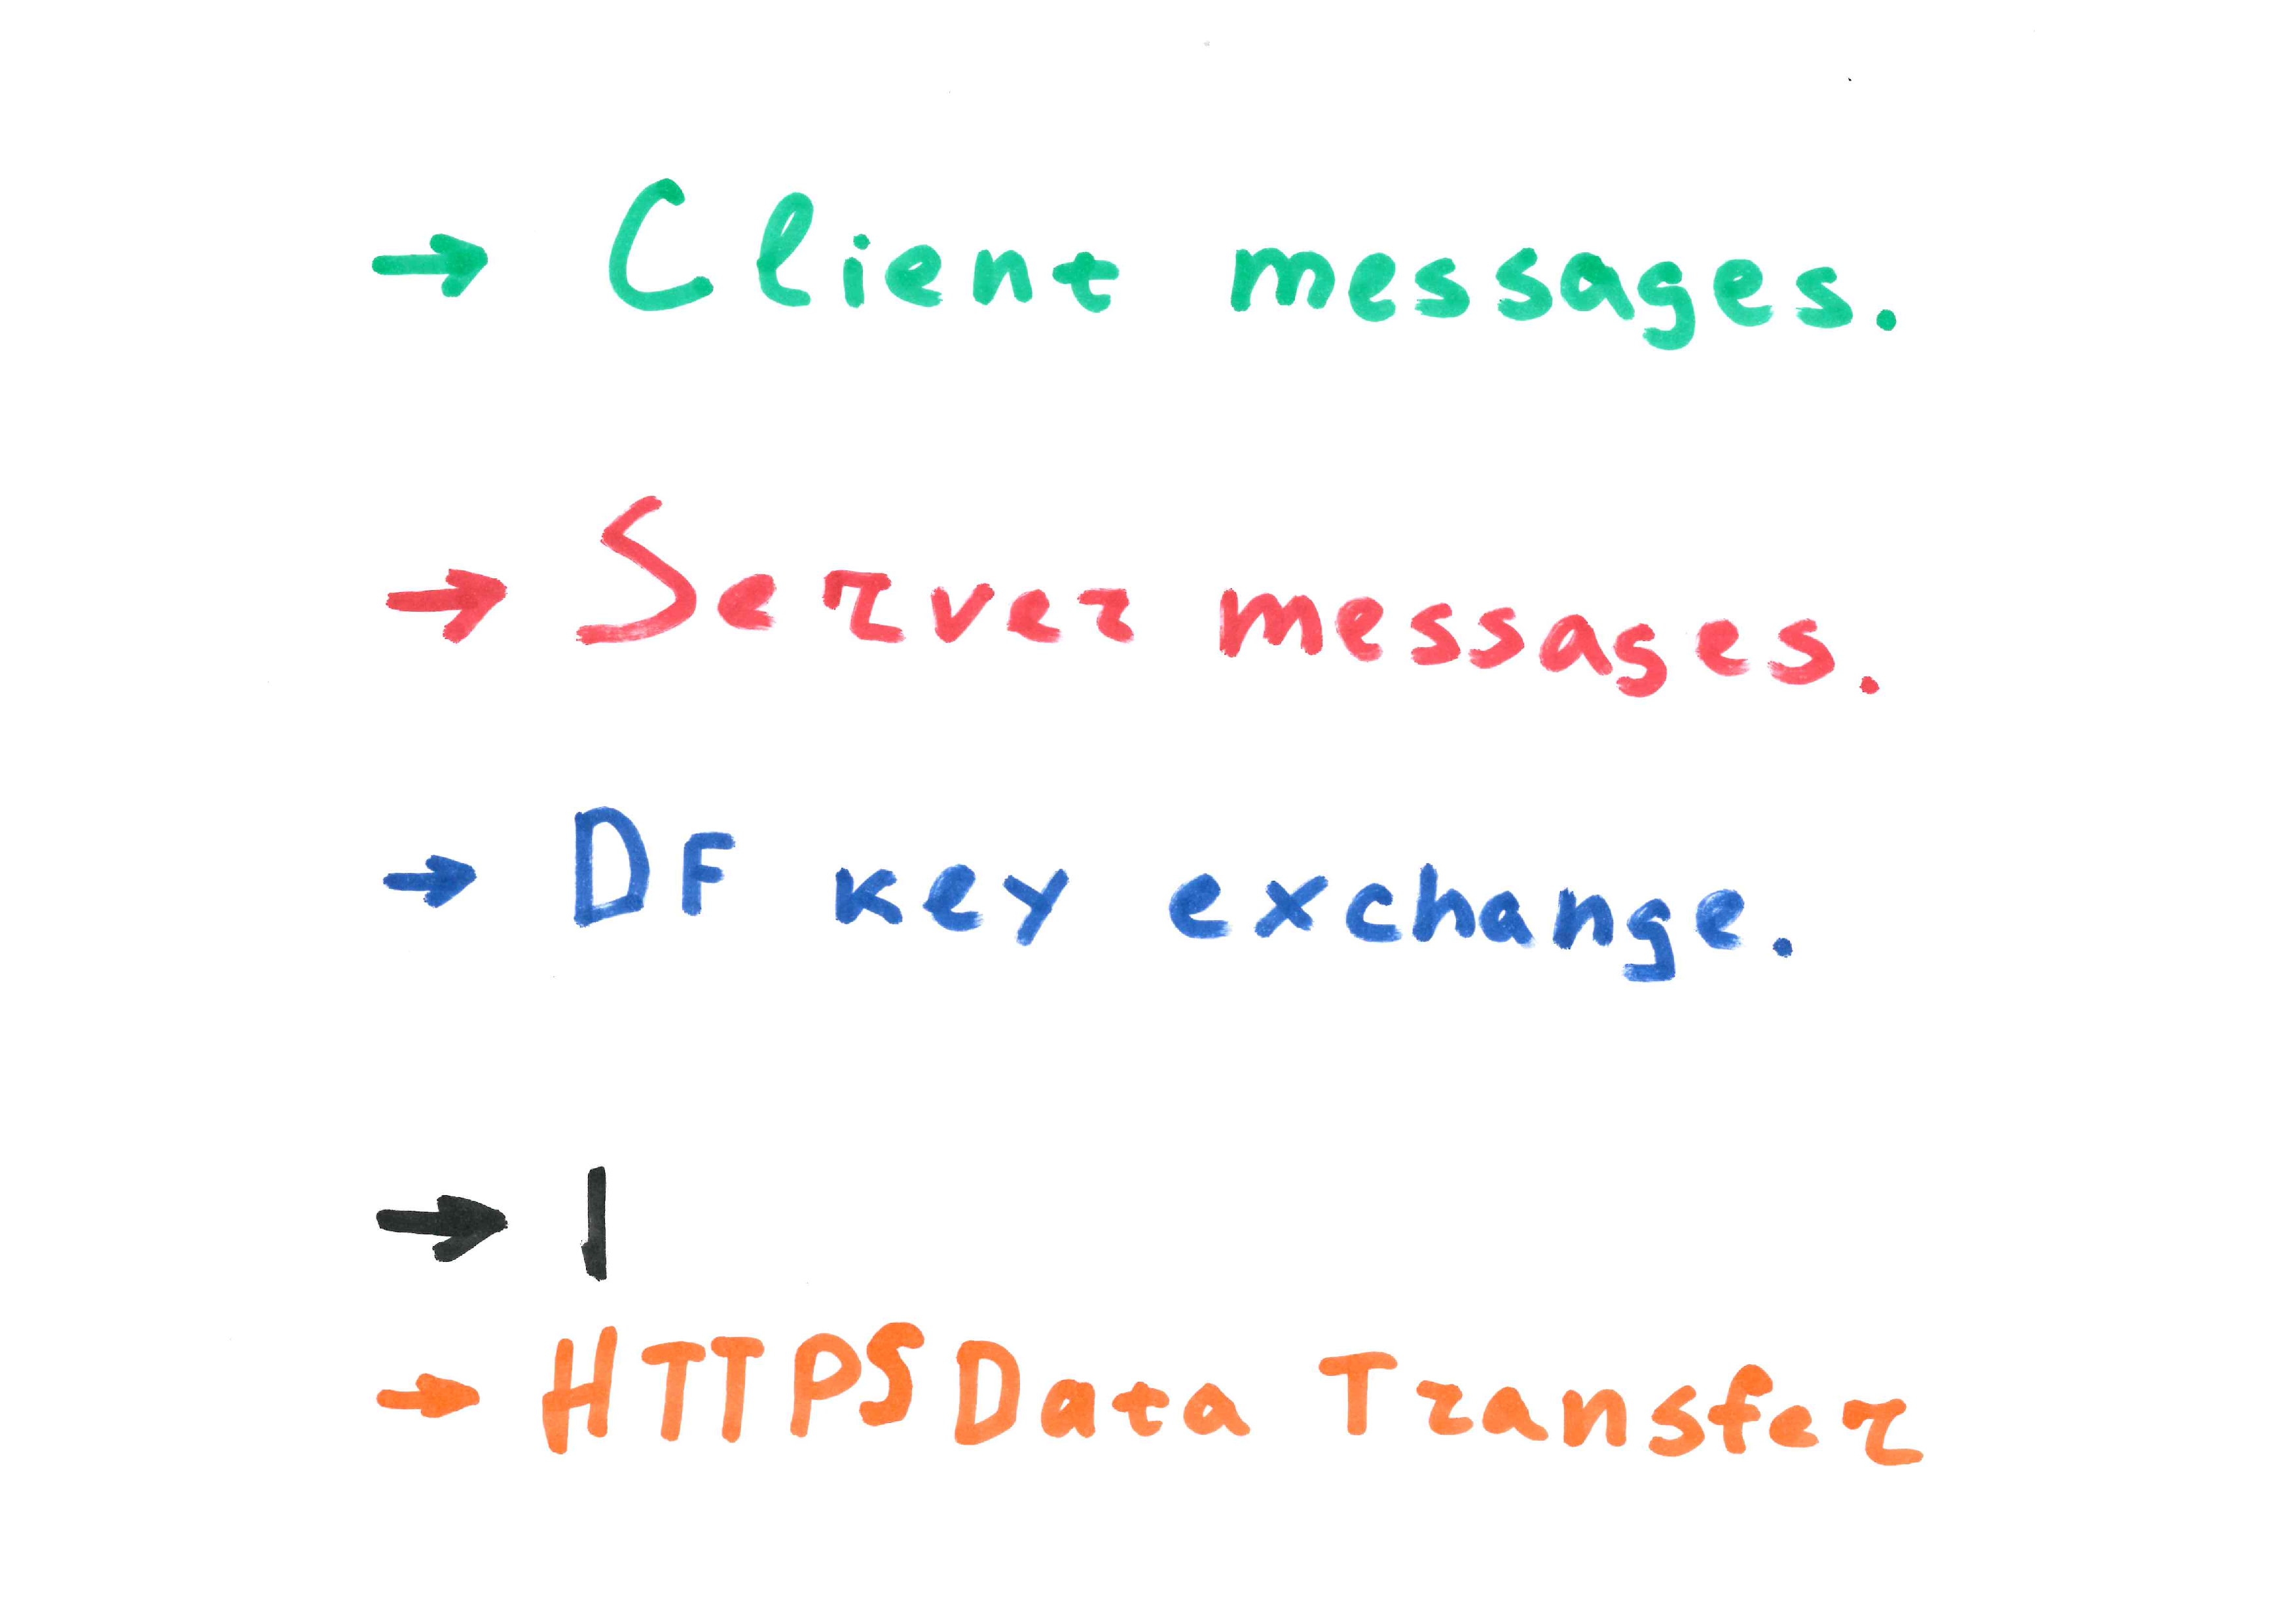 → Client messages.
→ Server messages.
→ DF key exchange.
→
→ HTTPS Data Transfer